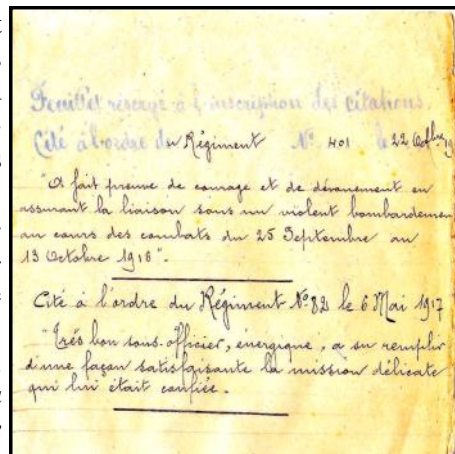 Feuillet réservé à l'inscription des citations.
Cité à l'ordre du Régiment N° 401 le 22 Octbre 19
"A fait preuve de courage et de dévouement en
assurant la liaison sous un violent bombardemen
au cours des combats du 25 Septembre au
13 Octobre 1916".
Cité à l'ordre du Régiment N° 82 le 6 Mai 1917
"Très bon sous-officier, énergique, a su remplir
d'une façon satisfaisante la mission délicate
qui lui était confiée.